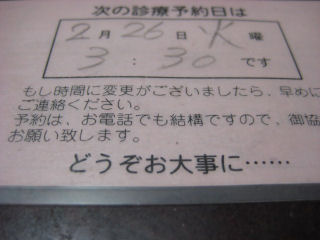 次の診療予約日は
2月26日火曜
3:30です
もし時間に変更がございましたら、早めに
ご連絡ください。
予約は、お電話でも結構ですので、御協
お願い致します。
どうぞお大事に……